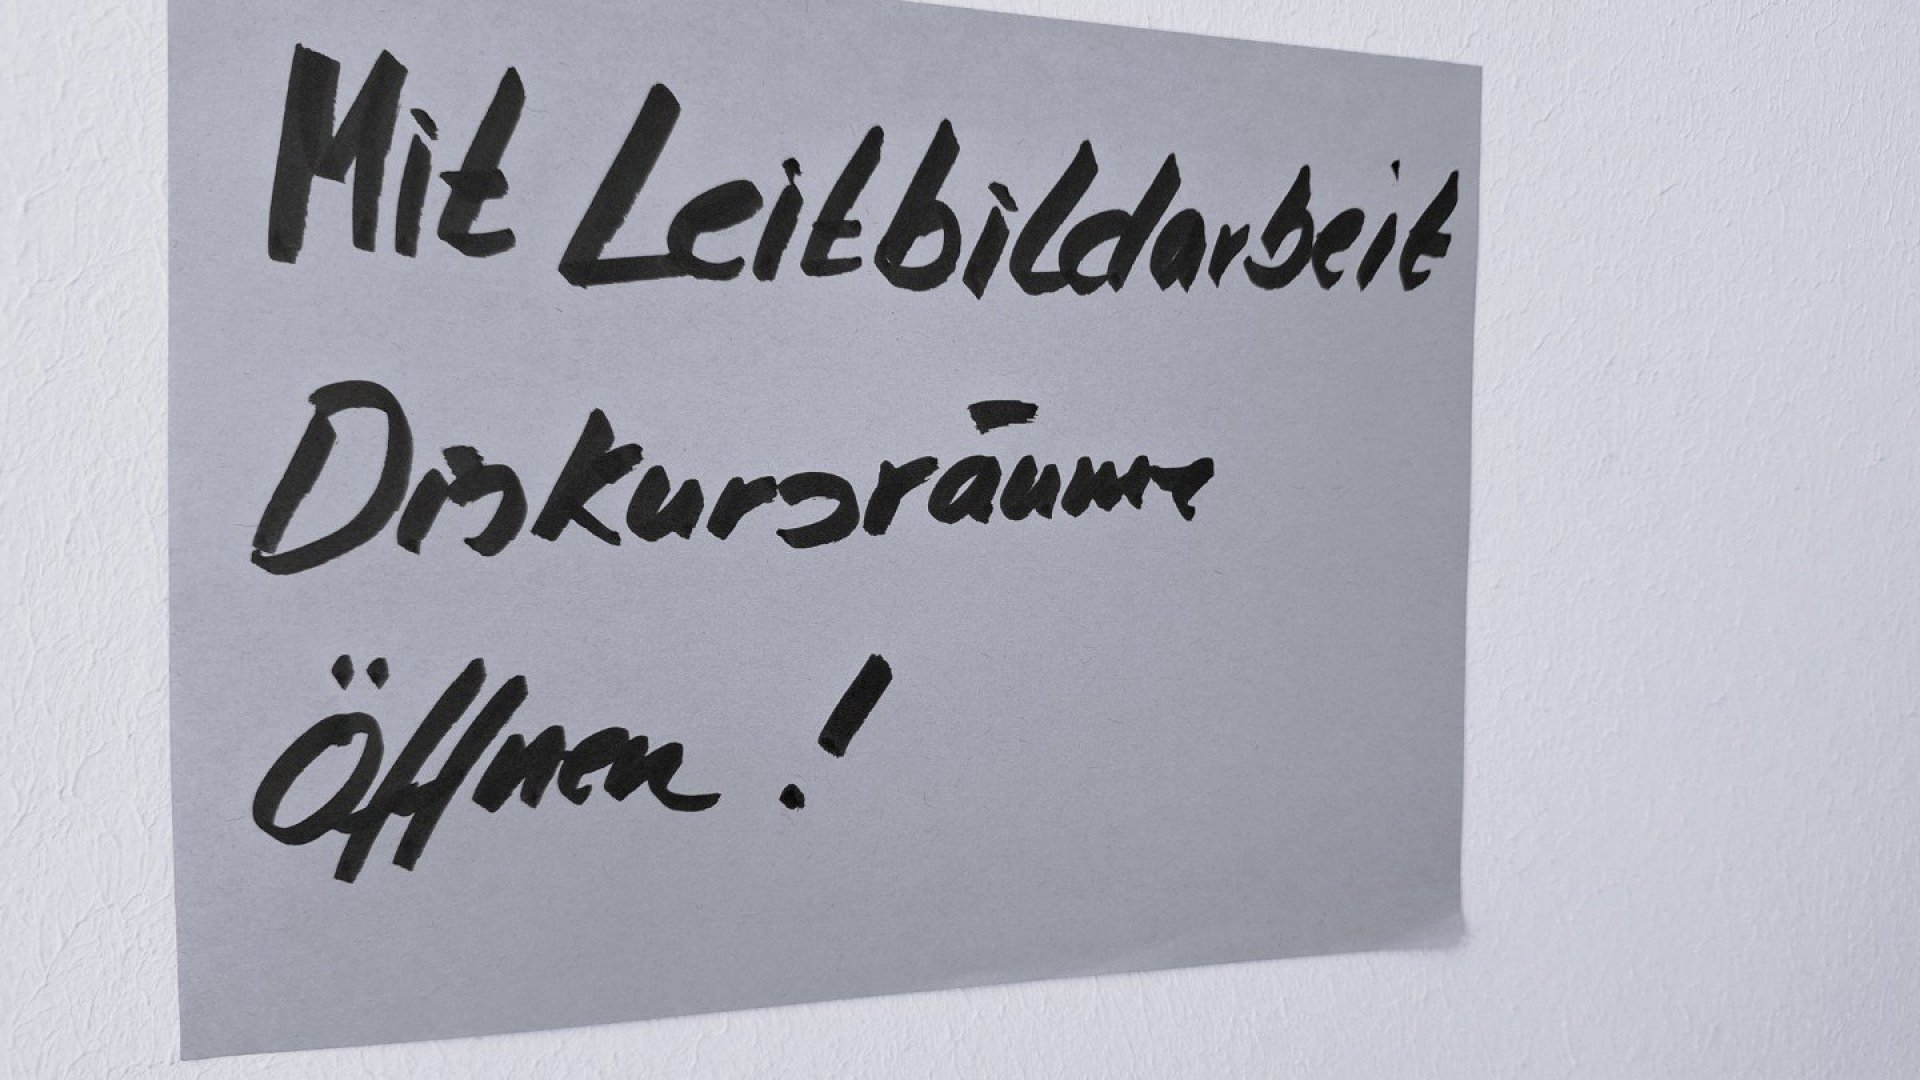 Mit Leitbildarbeit
Diskursräume
öffnen!